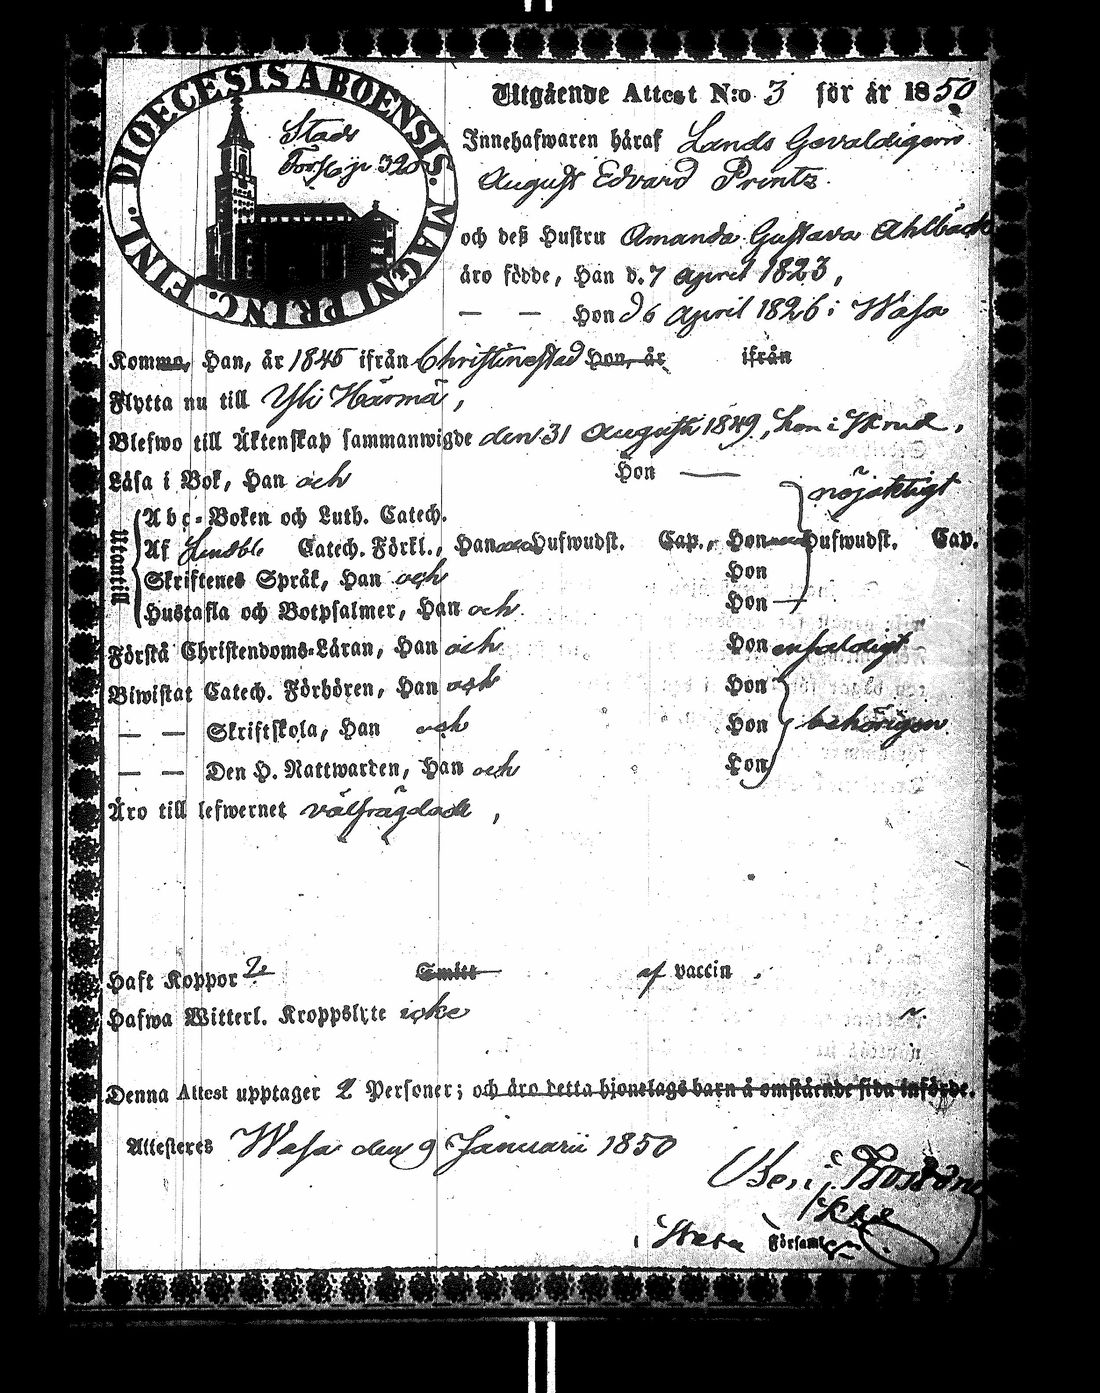 DIOECESIS ABOENSIS. MAGNI PRINC. FINL.
Stads
Utgående Attest N:o 3 för år 1850
Innehafwaren häraf Lands Gevaldigern
August Edvard Printz
och deß Hustru Amanda Gustava Ahlbäck
äro födde, Han d. 7 April 1823,
— — Hon d 6 April 1826 i Wasa
Kommo, Han, år 1845 ifrån Christinestad Hon, år ifrån
Flytta nu till Yli Härmä,
Blefwo till Äktenskap sammanwigde den 31 Augusti 1849, hon i
Läsa i Bok, Han och Hon — nöjaktigt
Utantill
Abc-Boken och Luth. Catech.
Af Lindbl. Catech. Förkl., Han och Hufwudst. Cap., Hon Hufwudst. Cap.
Skriftenes Språk, Han och Hon
Hustafla och Botpsalmer, Han och Hon —
Förstå Christendoms-Läran, Han och Hon enfaldigt
Biwistat Catech. Förhören, Han och Hon
— — Skriftskola, Han och Hon behörigen
— — Den H. Nattwarden, Han och Hon
Äro till lefwernet välfrägdade,
Haft Koppor ? Smitt af vaccin.
Hafwa Witterl. Kroppslyte icke
Denna Attest upptager 2 Personer; och äro detta hjonelags barn å omstående sida införde.
Attesteres Wasa den 9 Januarii 1850
Benj.
i Wasa Församl.